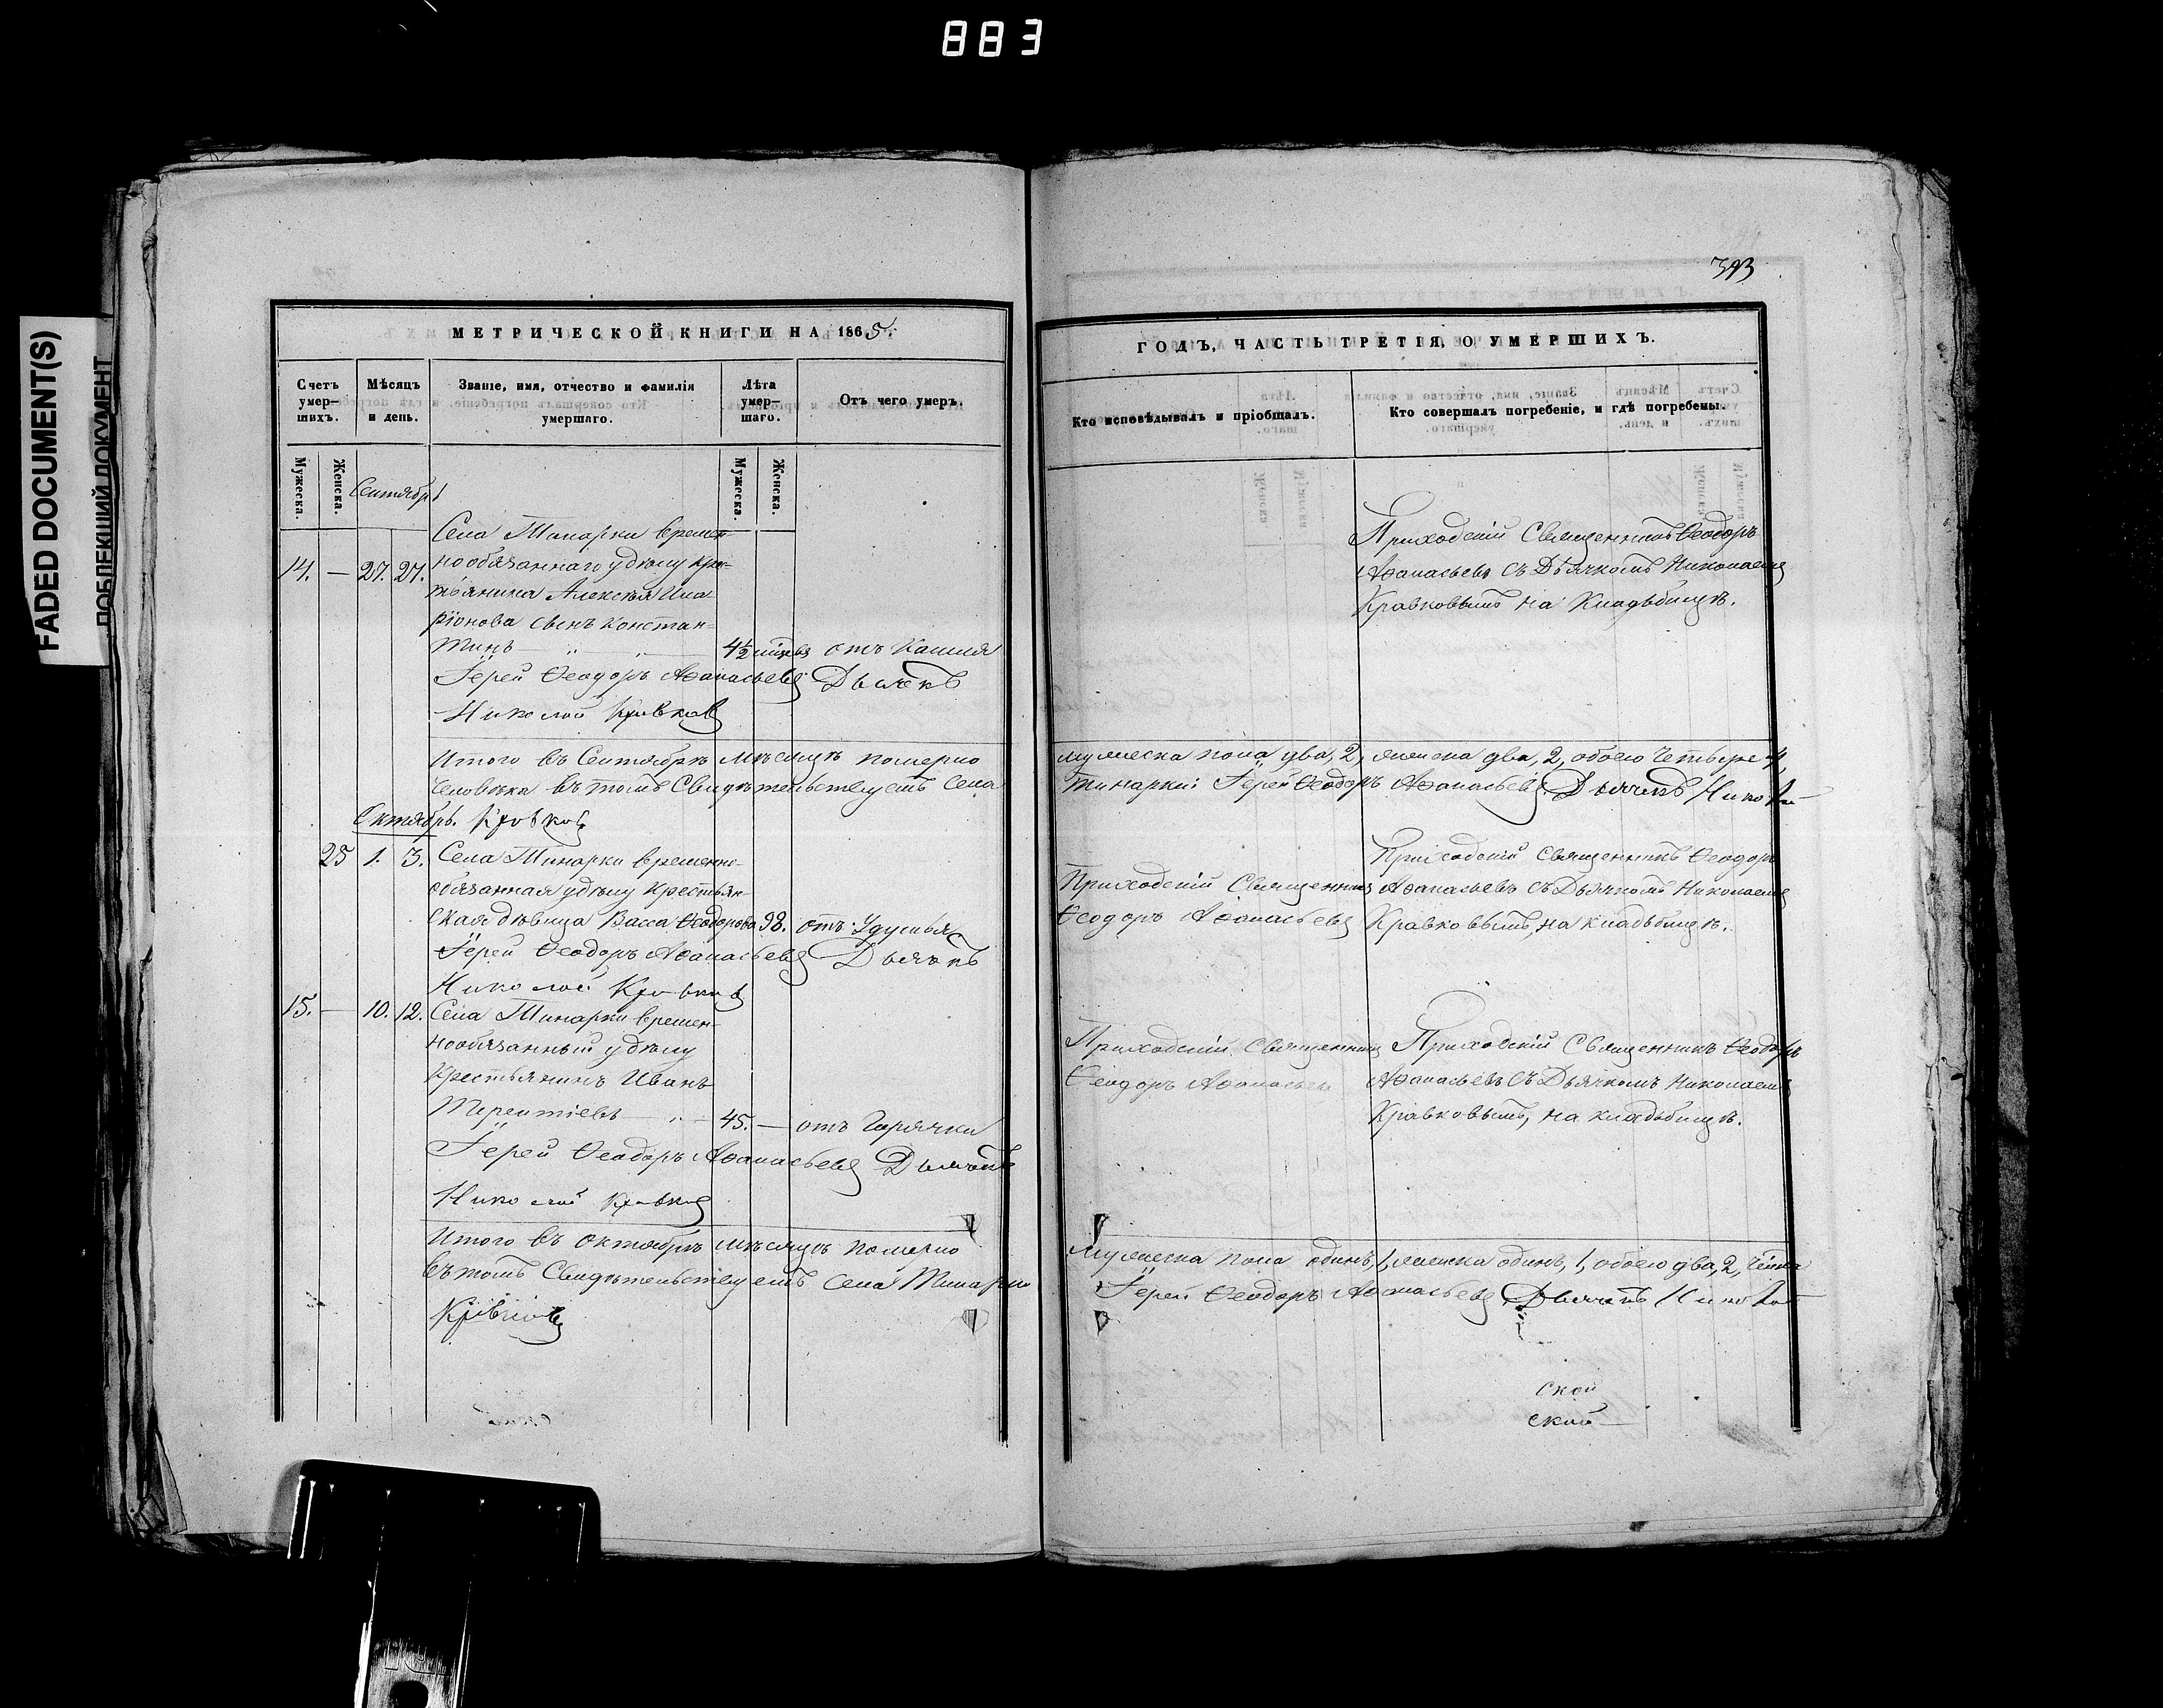 883
FADED DOCUMENT(S)
ПОБЛЕКШИЙ ДОКУМЕНТ
МЕТРИЧЕСКОЙ КНИГИ НА 1865.
Счетъ умер-шихъ.
Мѣсяцъ и день.
Званіе, имя, отчество и фамилія умершаго.
Лѣта умер-шаго.
Отъ чего умеръ.
Мужеска.
Женска.
Мужеска.
Женска.
Сентябрь
Села Тинарки времен-
14. — 27. 27. нообязаннаго удѣлу кре-
стьянина Алексѣя Ила
ріонова сынъ Констан-
тинъ 4½ отъ Кашля
Іерей Ѳеодоръ Аѳанасьевъ Дьячекъ
Николай Кравковъ
Итого въ Сентябрѣ мѣсяцѣ померло
человѣка въ томъ Свидѣтельствуемъ Села
Октябрь. Кравковъ
25 1. 3. Села Тинарки временно-
обязанная удѣлу крестьян-
ская дѣвица Васса Ѳеодорова 98. отъ удушья
Іерей Ѳеодоръ Аѳанасьевъ Дьячекъ
Николай Кравковъ
15. — 10. 12. Села Тинарки времен-
нообязанный удѣлу
крестьянинъ Иванъ
Терентіевъ 45. — отъ Горячки
Іерей Ѳеодоръ Аѳанасьевъ Дьячекъ
Николай Кравковъ
Итого въ Октябрѣ мѣсяцѣ померло
въ томъ Свидѣтельствуемъ Села Тинарки
Кравковъ
393
ГОДЪ, ЧАСТЬ ТРЕТІЯ, О УМЕРШИХЪ.
Кто исповѣдывалъ и пріобщалъ.
Кто совершалъ погребеніе, и гдѣ погребены.
Приходскій Священникъ Ѳеодоръ
Аѳанасьевъ съ Дьячкомъ Николаемъ
Кравковымъ на Кладьбищѣ.
мужеска пола два, 2, женска два, 2, обоего четыре 4,
Тинарки: Іерей Ѳеодоръ Аѳанасьевъ Дьячекъ Николай
Приходскій Священникъ Ѳеодоръ
Приходскій Священникъ Аѳанасьевъ съ Дьячкомъ Николаемъ
Ѳеодоръ Аѳанасьевъ Кравковымъ, на кладьбищѣ.
Приходскій Священникъ Приходскій Священникъ Ѳеодоръ
Ѳеодоръ Аѳанасьевъ Аѳанасьевъ съ Дьячкомъ Николаемъ
Кравковымъ, на кладьбищѣ.
мужеска пола одинъ, 1, женска одинъ, 1, обоего два, 2,
Іерей Ѳеодоръ Аѳанасьевъ Дьячекъ Николай
ской
ской